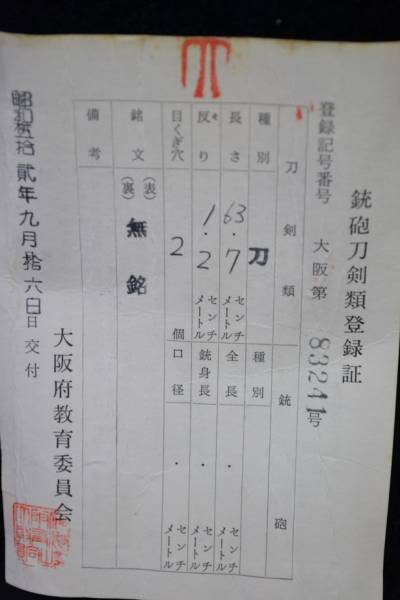 銃砲刀剣類登録証
登録記号番号 大阪第 83241号
刀剣類 銃砲
種別 刀 種別
長さ 63.7 センチメートル 全長 . センチメートル
反り 1.2 センチメートル 銃身長 . センチメートル
目くぎ穴 2 個 口径 . センチメートル
銘文 (表) 無銘
(裏)
備考
昭和五拾貳年九月拾六日日交付
大阪府教育委員会